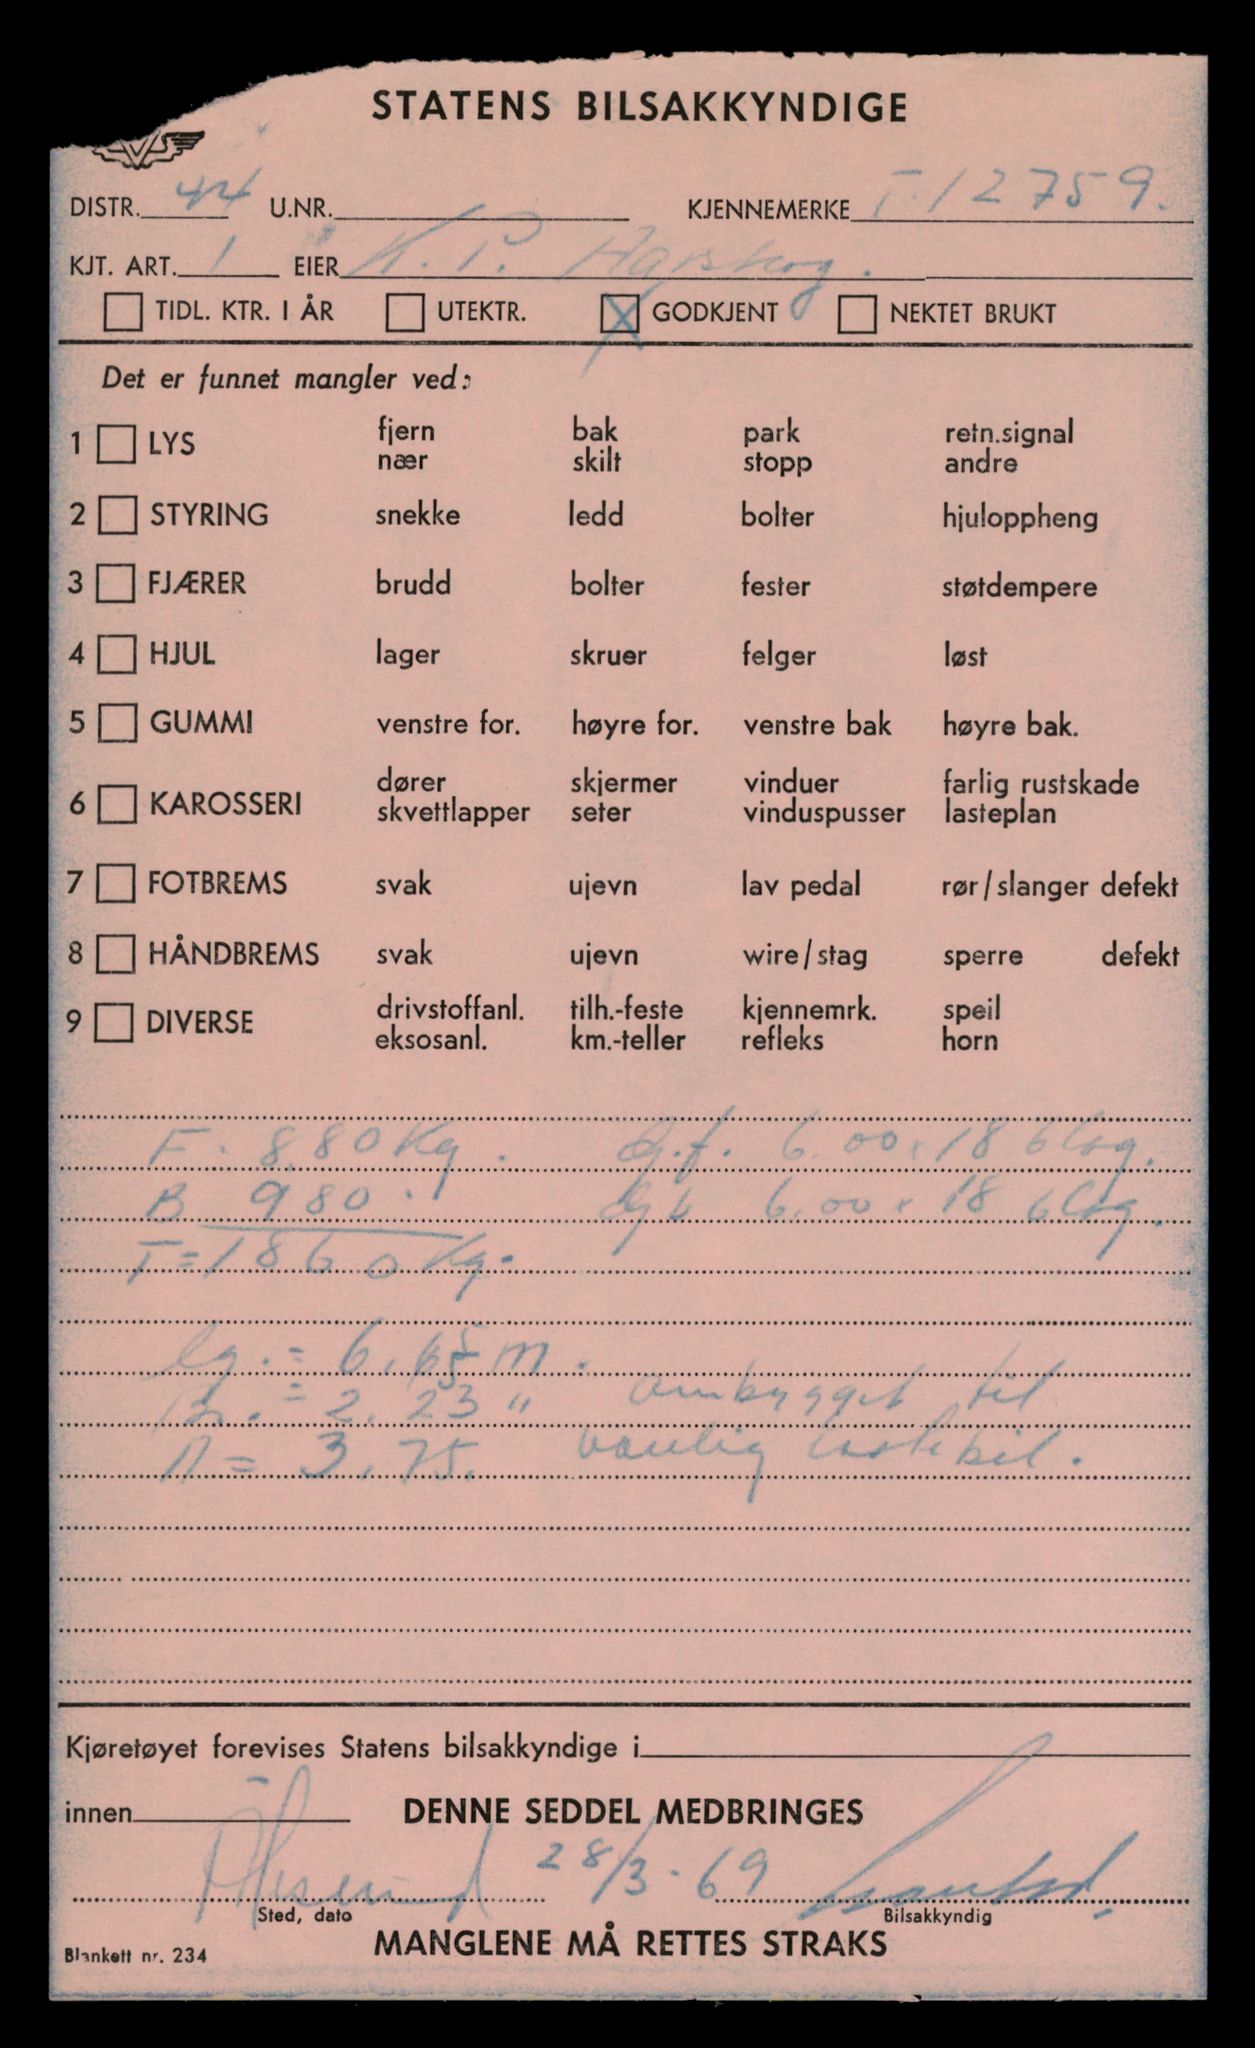 STATENS BILSAKKYNDIGE
DISTR. 44 U.NR. KJENNEMERKE T-12759.
KJT. ART. 1 EIER K. P. Harshog.
TIDL. KTR. I ÅR UTEKTR. X GODKJENT NEKTET BRUKT
Det er funnet mangler ved:
1 LYS fjern bak park retn.signal
nær skilt stopp andre
2 STYRING snekke ledd bolter hjuloppheng
3 FJÆRER brudd bolter fester støtdempere
4 HJUL lager skruer felger løst
5 GUMMI venstre for. høyre for. venstre bak høyre bak.
6 KAROSSERI dører skjermer vinduer farlig rustskade
skvettlapper seter vinduspusser lasteplan
7 FOTBREMS svak ujevn lav pedal rør/slanger defekt
8 HÅNDBREMS svak ujevn wire/stag sperre defekt
9 DIVERSE drivstoffanl. tilh.-feste kjennemrk. speil
eksosanl. km.-teller refleks horn
F. 880 Kg. G.f. 6.00 x 18 6 lag.
B 980. G b 6.00 x 18 6 lag.
T = 1860 Kg.
lg. = 6,65 m.
Br. = 2,23 " ombygget til
A = 3,75. vanlig lastebil.
Kjøretøyet forevises Statens bilsakkyndige i
innen DENNE SEDDEL MEDBRINGES
Ålesund 28/3-69
Sted, dato Bilsakkyndig
Blankett nr. 234 MANGLENE MÅ RETTES STRAKS